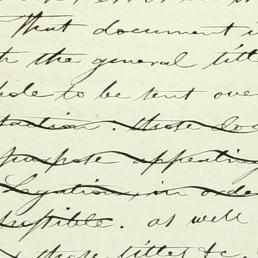 That document i
the general title
ole to be sent ove
taction. those doc
purpose appertaining
Legations, in orde
. as well
those titles &c.